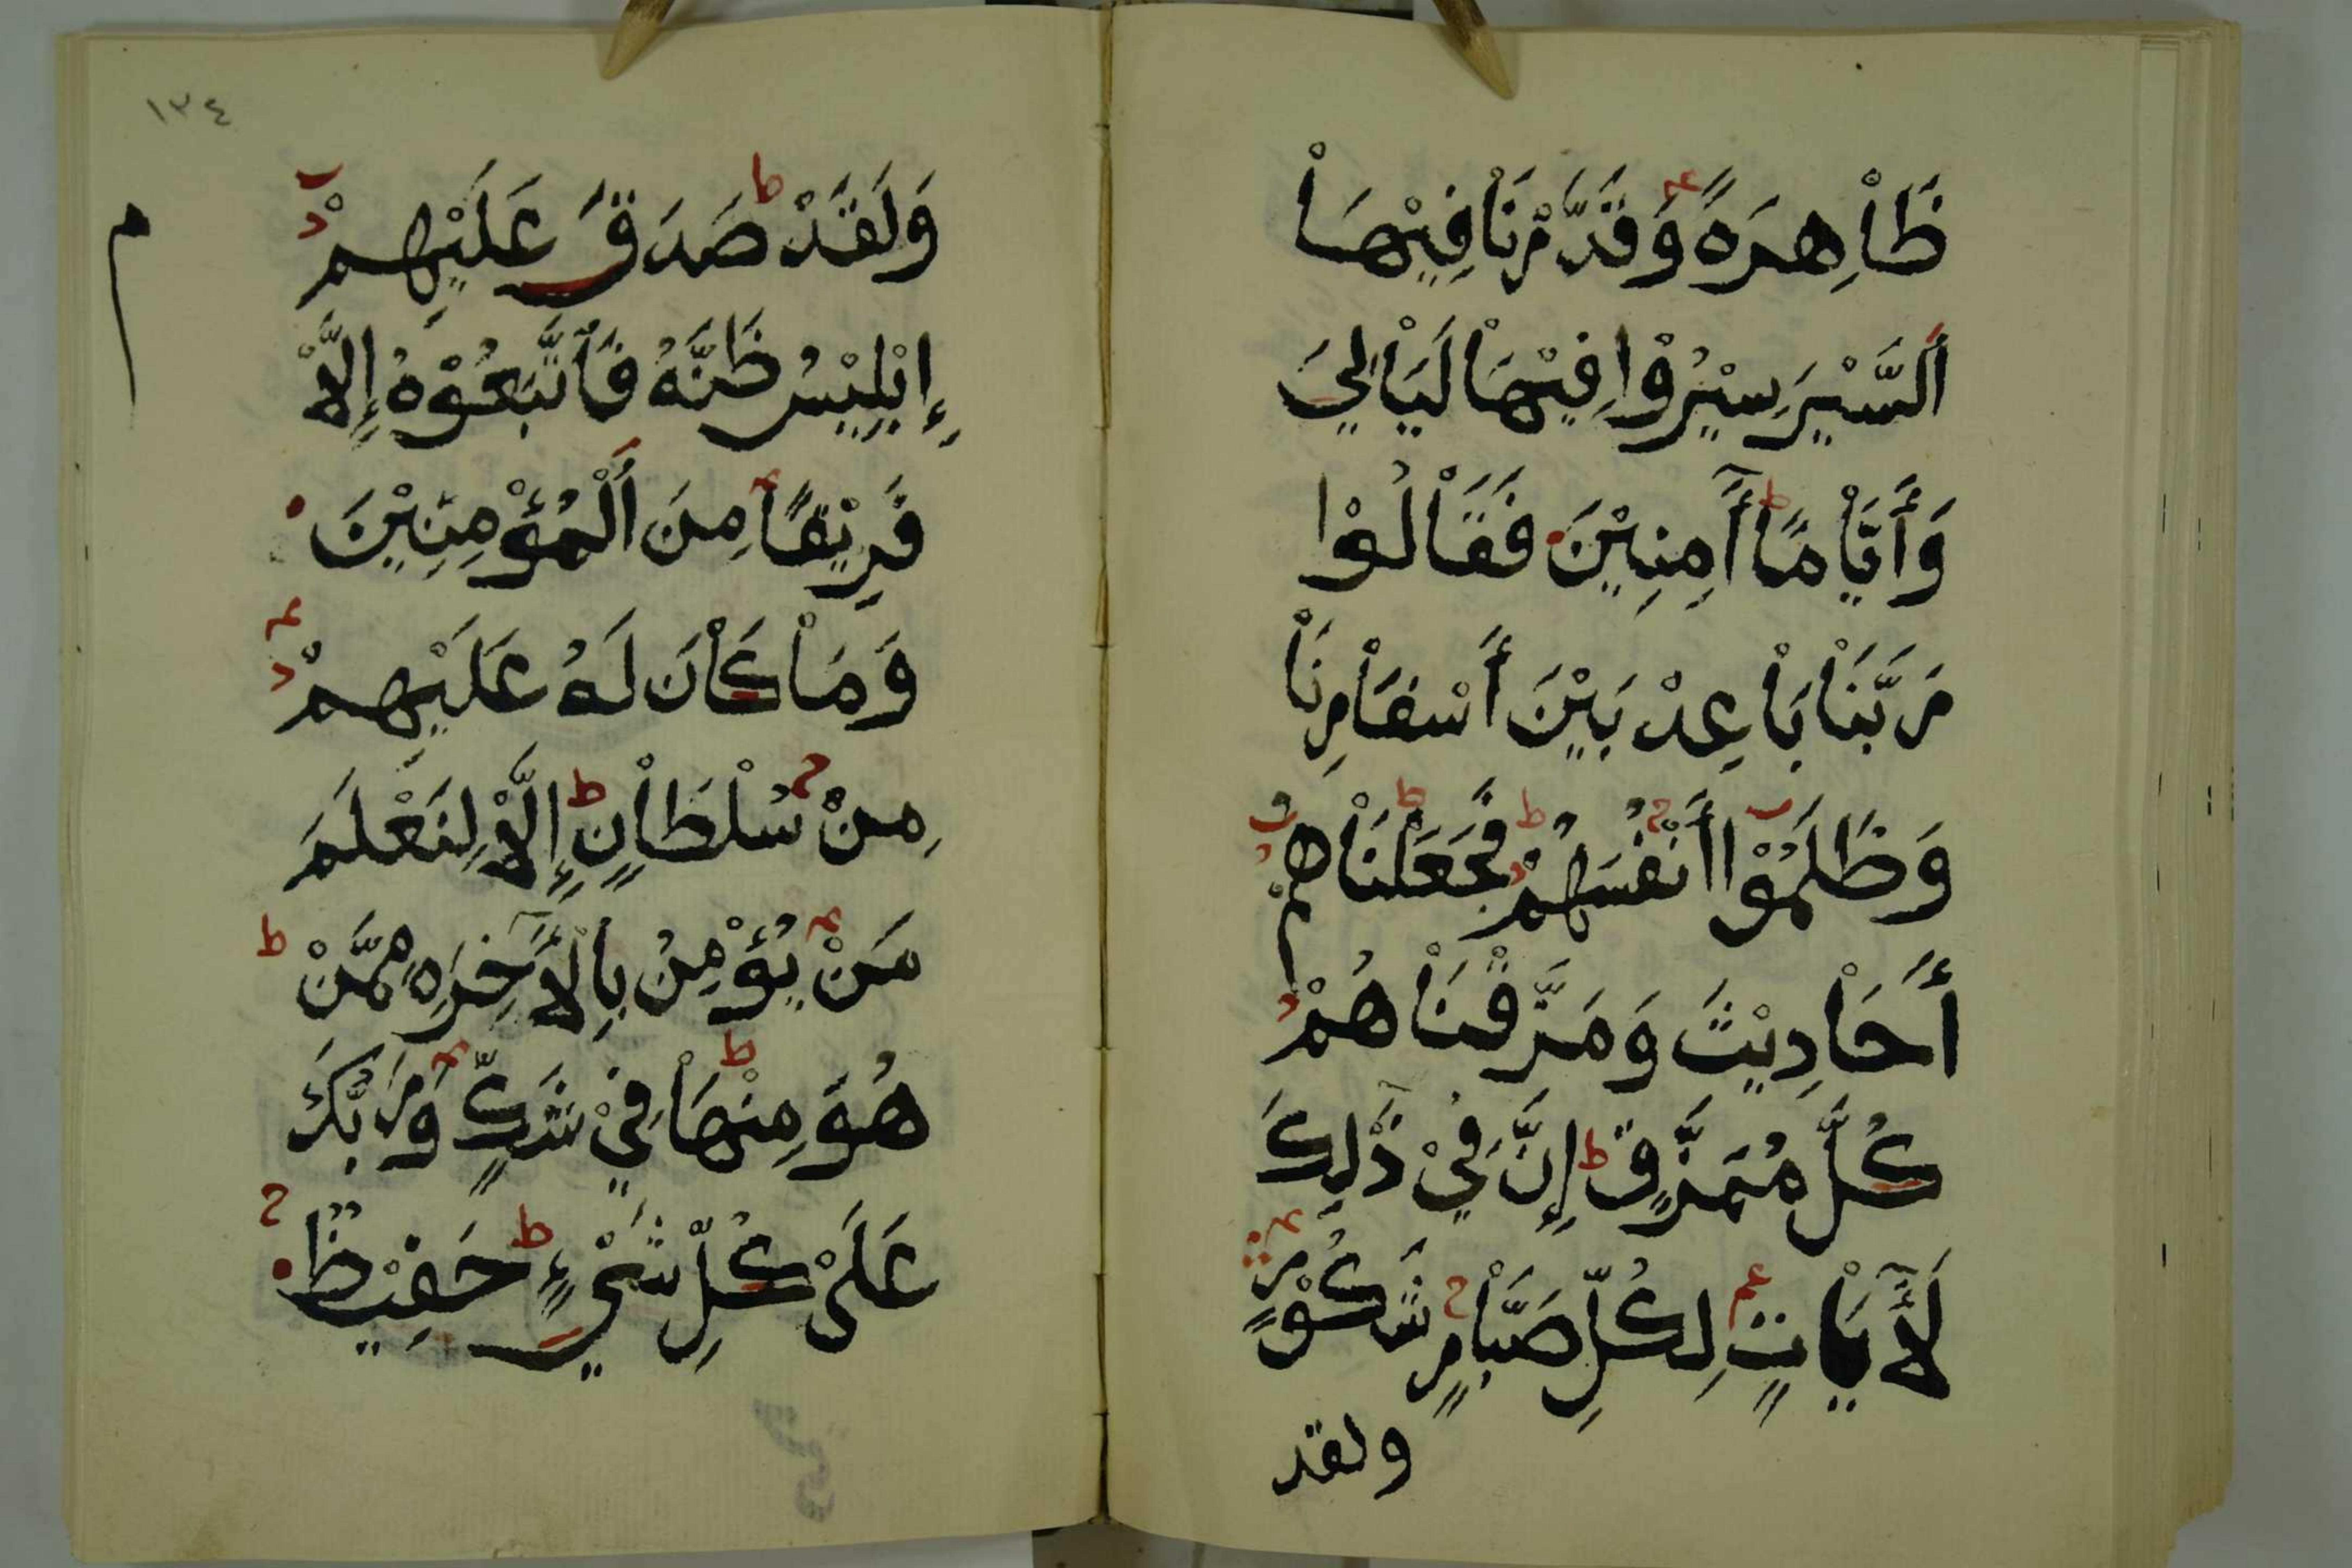 ظَاْهِرَةً وَقَدَّرْنَا فِيْهَاْ
اَلسَّيْرَ سِيْرُوْا فِيْهَاْ لَيَاْلِيَ
وَأَيَّاْمًا أَٓمِنِيْنَ فَقَاْلُوْا
رَبَّنَاْ بَاْعِدْ بَيْنَ أَسْفَاْرِنَاْ
وَظَلَمُوْا أَنْفُسَهُمْ فَجَعَلْنَاْهُمْ
أَحَاْدِيْثَ وَمَزَّقْنَاْهُمْ
كُلَّ مُمَزَّقٍ إِنَّ فِيْ ذَٰلِكَ
لَأَٓيَاْتٍ لِكُلِّ صَبَّاْرٍ شَكُوْرٍ
ولقد
١٣٤
م
وَلَقَدْ صَدَقَ عَلَيْهِمْ
إِبْلِيْسُ ظَنَّهُ فَاْتَّبَعُوْهُ إِلَّاْ
فَرِيْقًا مِنَ اَلْمُؤْمِنِيْنَ
وَمَاْ كَاْنَ لَهُ عَلَيْهِمْ
مِنْ سُلْطَاْنٍ إِلَّاْ لِنَعْلَمَ
مَنْ يُؤْمِنُ بِالْأَٓخِرَةِ مِمَّنْ
هُوَ مِنْهَاْ فِيْ شَكٍّ وَرَبُّكَ
عَلَىْ كُلِّ شَيْءٍ حَفِيْظٌ